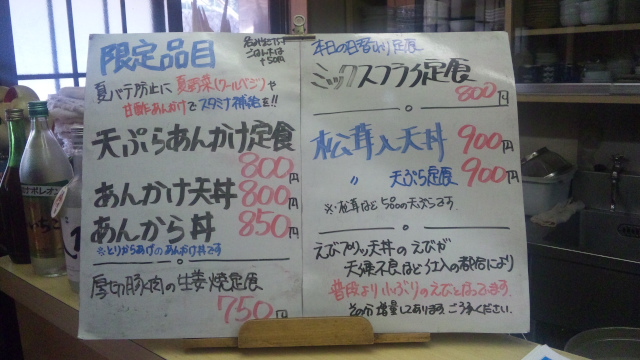 限定品目
ごはん大は
+50円
夏バテ防止に 夏野菜(クールベジ)や
甘酢あんかけで スタミナ補給を!!
天ぷらあんかけ定食
800円
あんかけ天丼 800円
あんから丼 850円
※とりからあげのあんかけ丼です
厚切豚肉の生姜焼定食
750円
本日の日替り定食
ミックスフライ定食
800円
松茸入天丼 900円
〃 天ぷら定食 900円
※松茸ほど5品の天ぷらです。
えびアリッ天丼のえびが
天候不良など仕入の都合により
普段より小ぶりのえびとなってます。
その分増量してあります。ご了承ください。